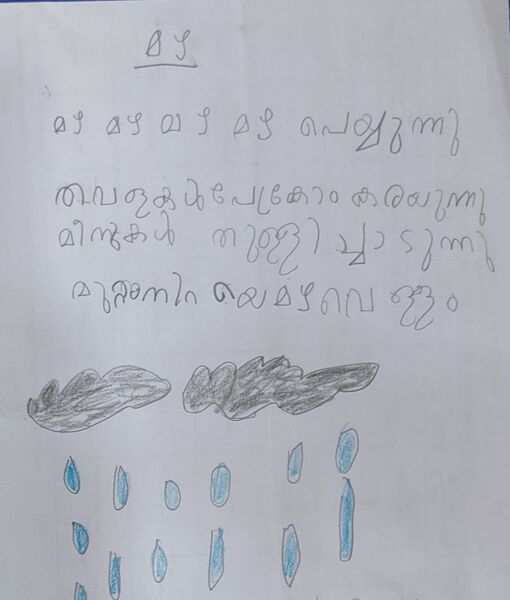 മഴ
മഴ മഴ മഴ മഴ പെയ്യുന്നു
തവളകൾ പേക്രോം കരയുന്നു
മീനുകൾ തുള്ളിച്ചാടുന്നു
മുറ്റംനിറയെ മഴവെള്ളം